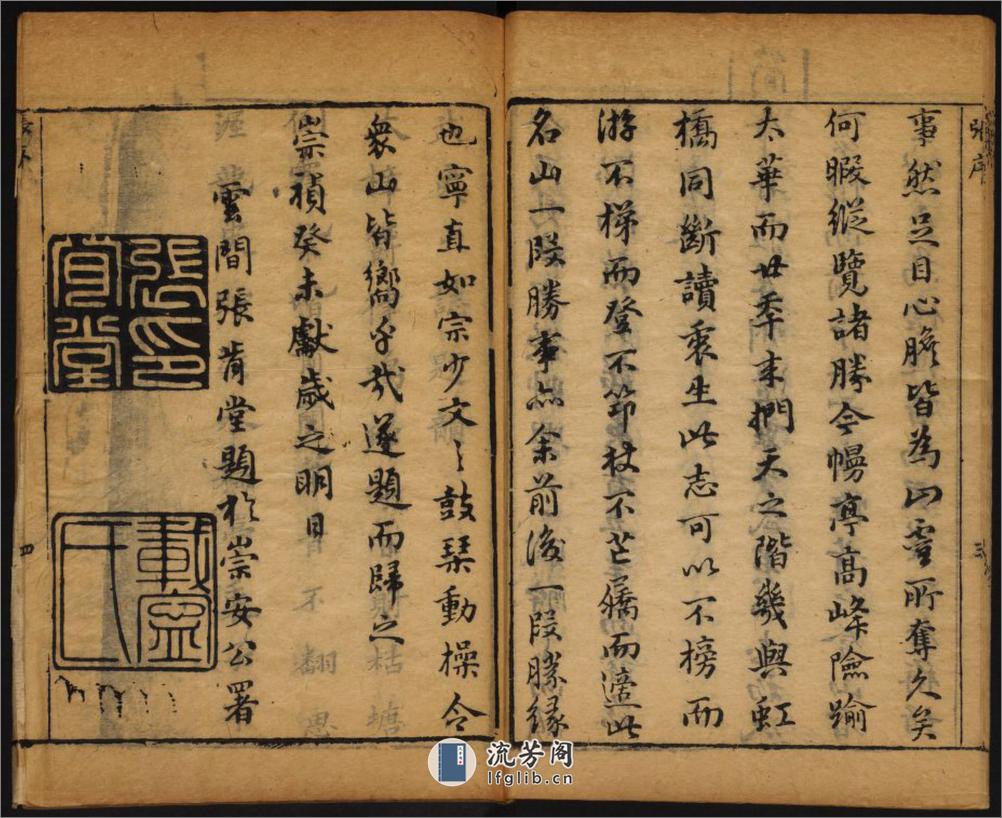 張序
事然足目心膽皆為山靈所奪久矣
何暇縱覽諸勝今幔亭高峰險踰
太華而廿季来捫天之階幾與虹
橋同斷讀衷生此志可以不榜而
游不梯而登不筇杖不芒屩而遊此
名山一段勝事亦余前後一段勝緣
三
也寧直如宗少文之鼓琴動操令
衆山皆嚮乎哉遂題而歸之
崇禎癸未獻歲之明日
雲間張肯堂題於崇安公署
張肯堂印
載寧氏
四
流芳阁
lfglib.cn